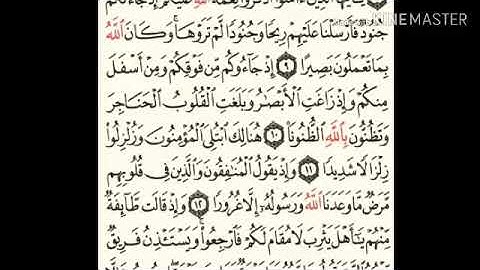 KINEMASTER
يَٰٓأَيُّهَا ٱلَّذِينَ ءَامَنُوا۟ ٱذْكُرُوا۟ نِعْمَةَ ٱللَّهِ عَلَيْكُمْ إِذْ جَآءَتْكُمْ
جُنُودٌ فَأَرْسَلْنَا عَلَيْهِمْ رِيحًا وَجُنُودًا لَّمْ تَرَوْهَا ۚ وَكَانَ ٱللَّهُ
بِمَا تَعْمَلُونَ بَصِيرًا ٩ إِذْ جَآءُوكُم مِّن فَوْقِكُمْ وَمِنْ أَسْفَلَ
مِنكُمْ وَإِذْ زَاغَتِ ٱلْأَبْصَٰرُ وَبَلَغَتِ ٱلْقُلُوبُ ٱلْحَنَاجِرَ
وَتَظُنُّونَ بِٱللَّهِ ٱلظُّنُونَا۠ ١٠ هُنَالِكَ ٱبْتُلِىَ ٱلْمُؤْمِنُونَ وَزُلْزِلُوا۟
زِلْزَالًا شَدِيدًا ١١ وَإِذْ يَقُولُ ٱلْمُنَٰفِقُونَ وَٱلَّذِينَ فِى قُلُوبِهِم
مَّرَضٌ مَّا وَعَدَنَا ٱللَّهُ وَرَسُولُهُۥٓ إِلَّا غُرُورًا ١٢ وَإِذْ قَالَت طَّآئِفَةٌ
مِّنْهُمْ يَٰٓأَهْلَ يَثْرِبَ لَا مُقَامَ لَكُمْ فَٱرْجِعُوا۟ ۚ وَيَسْتَـْٔذِنُ فَرِيقٌ